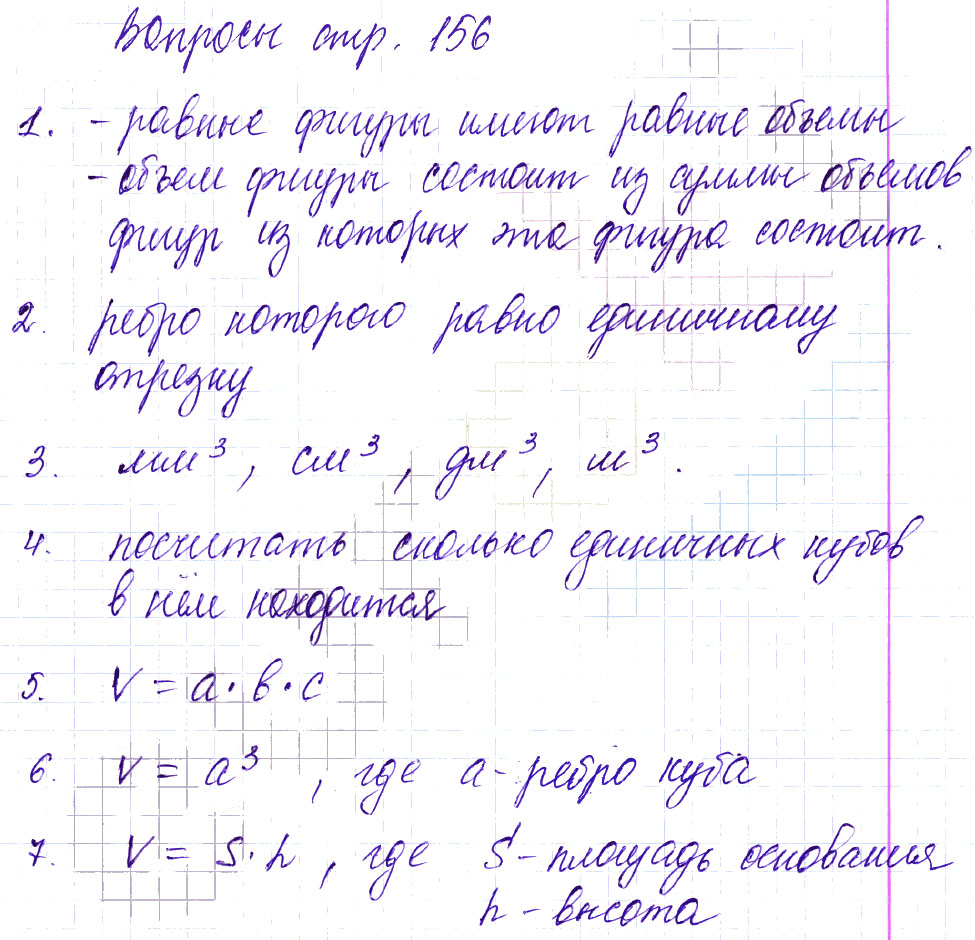 Вопросы стр. 156
1. - равные фигуры имеют равные объемы
- объем фигуры состоит из суммы объемов
фигур из которых эта фигура состоит.
2. ребро которого равно единичному
отрезку
3. мм³, см³, дм³, м³.
4. посчитать сколько единичных кубов
в нём находится
5. V = a · b · c
6. V = a³, где a - ребро куба
7. V = S · h, где S - площадь основания
h - высота